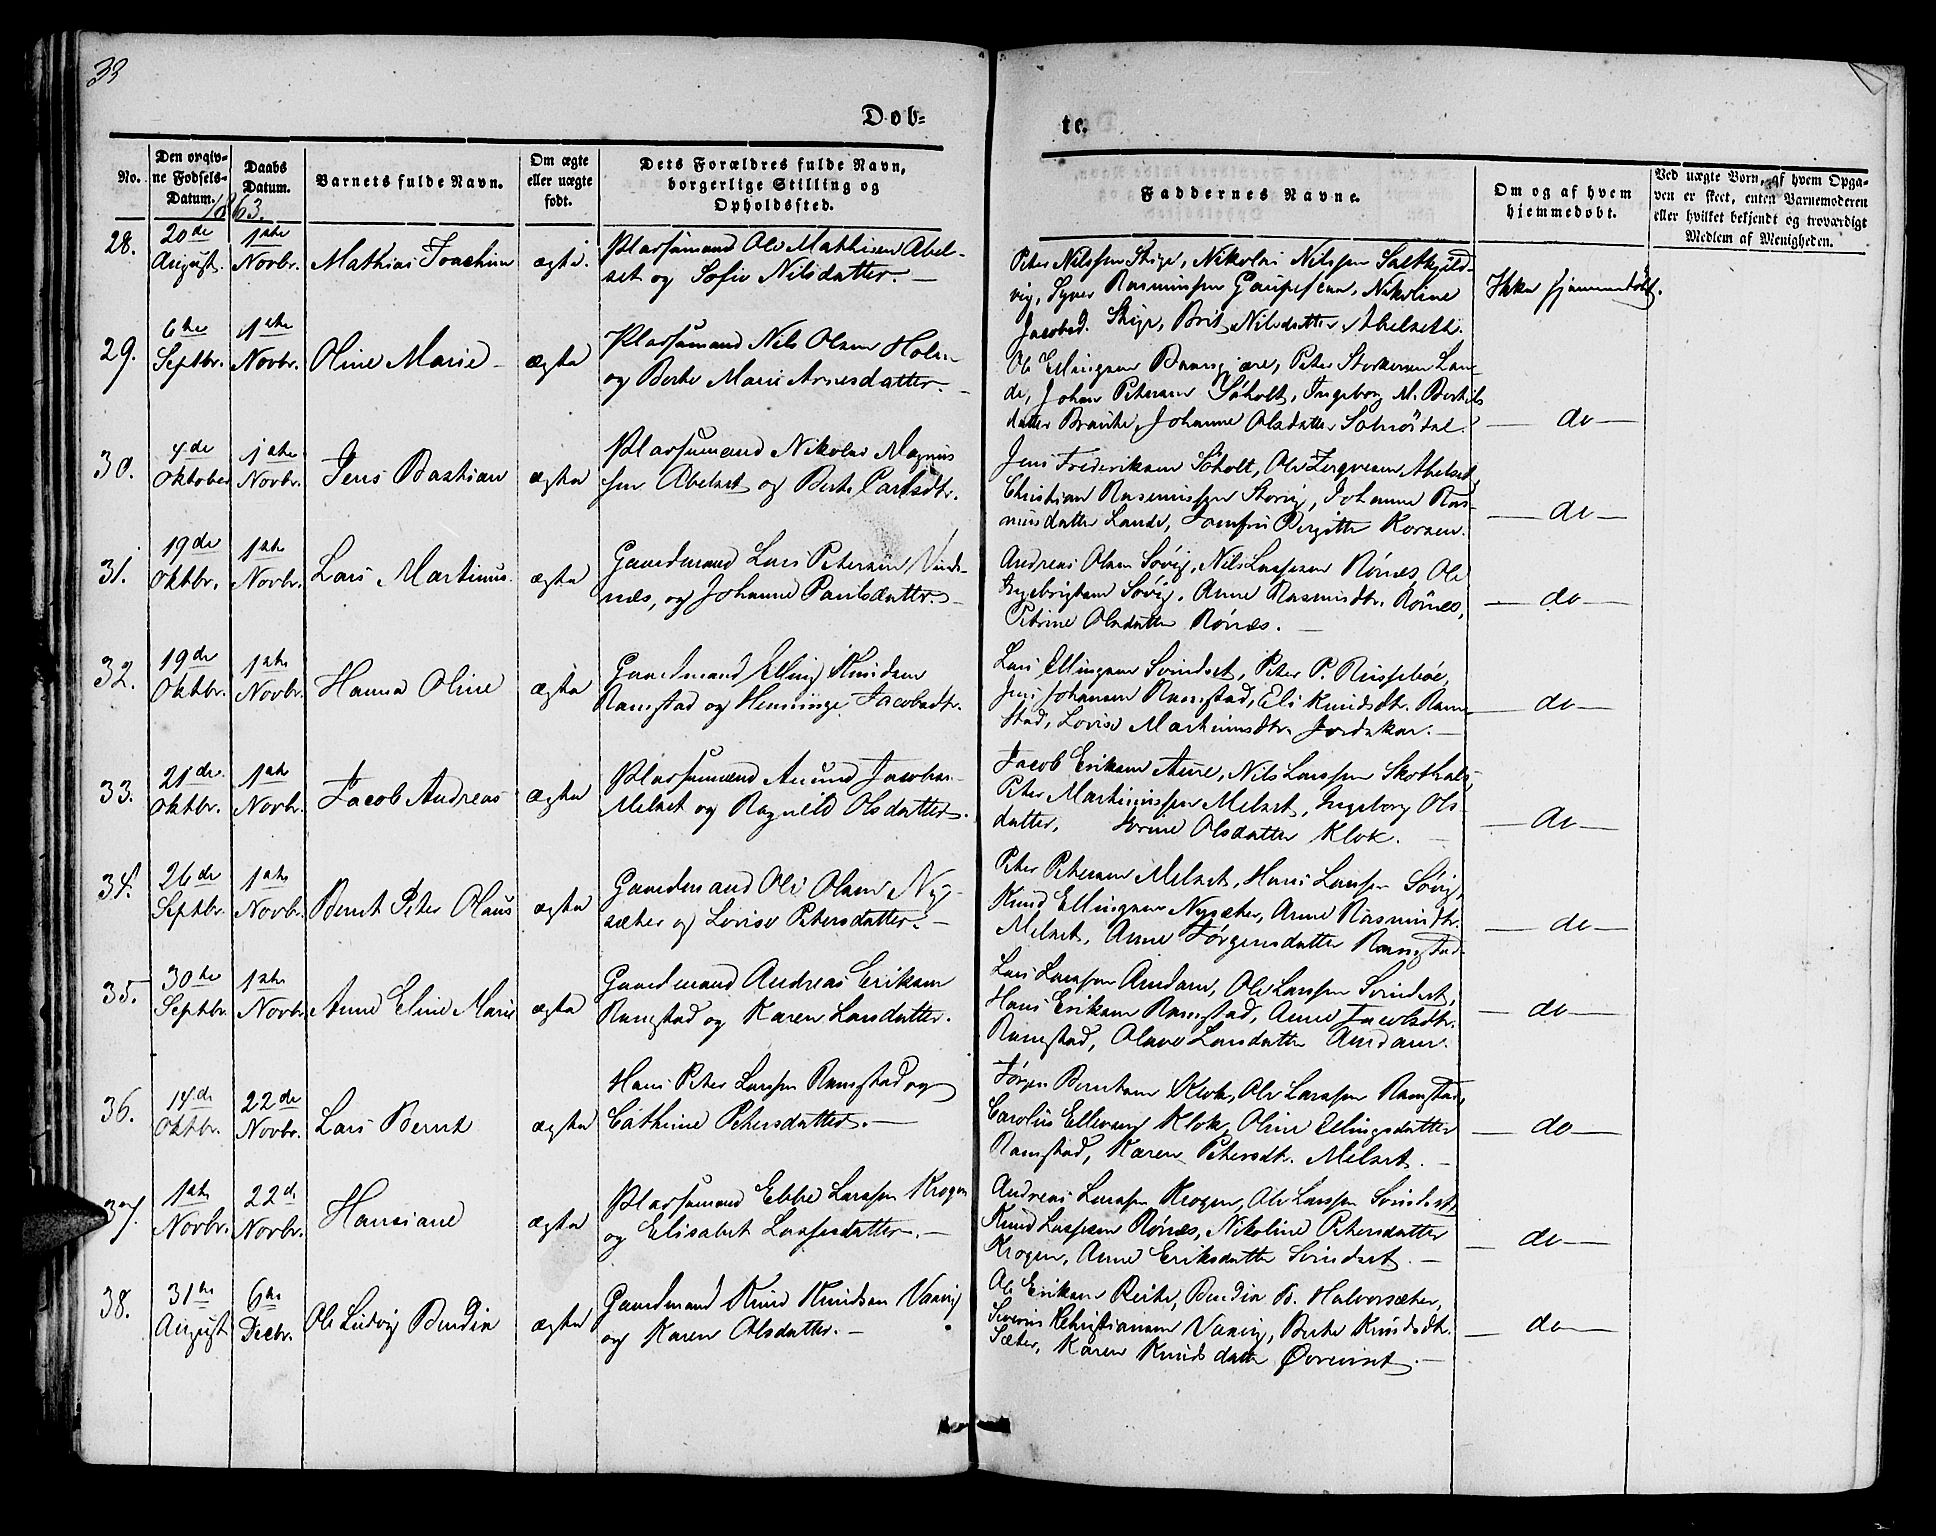 33
Døb-
te.
No.
Den opgiv-
ne Fødsels-
Datum.
Daabs
Datum.
Barnets fulde Navn.
Om ægte
eller uægte
født.
Dets Forældres fulde Navn,
borgerlige Stilling og
Opholdssted.
Faddernes Navne.
Om og af hvem
hjemmedøbt.
Ved uægte Børn, af hvem Opga-
ven er skeet, enten Barnemoderen
eller hvilket bekjendt og troværdigt
Medlem af Menigheden.
1863.
28.
20de
August
1ste
Novbr.
Mathias Joachim
ægte.
Pladsemand Ole Mathisen Abel-
set og Sofie Nilsdatter. —
Peter Nilssen Skige, Nikolai Nilssen Saltkjeld-
vig, Syver Rasmussen Gaupesean, Nikoline
Jacobsd. Skige, Brit Nilsdatter Abelseth.
Ikke hjemmedøbt.
29.
6te
Septbr.
1ste
Novbr.
Oline Marie —
ægte
Pladsemand Nils Olsen Holen
og Berte Marie Arnesdatter. —
Ole Ellingsen Baansgjære, Peter Storkersen Lan-
de, Johan Petersen Søholt, Ingeborg M. Bertils
datter Braute, Johanne Olsdatter Solnørdal.
— do —
30.
4de
Oktober
1ste
Novbr.
Jens Bastian
ægte
Pladsemand Nikolai Magnus
sen Abelset og Berte Carlsdtr.
Jens Frederiksen Søholt, Ole Jørgensen Abelset,
Christian Rasmussen Storvig, Johanne Ras-
musdatter Lande, Jomfru Birgitte Korsen.
— do —
31.
19de
Oktbr.
1ste
Novbr.
Lars Martinus.
ægte
Gaardmand Lars Petersen Vinds-
næs, og Johanne Paulsdatter. —
Andreas Olsen Søvig, Nils Larssen Rønæs, Ole
Ingebrigtsen Søvig, Anne Rasmusdtr. Rønes,
Petrine Olsdatter Rønæs. —
— do —
32.
19de
Oktbr.
1ste
Novbr.
Hanna Oline
ægte
Gaardmand Elling Knudsen
Ramstad og Henninge Jacobsdtr.
Lars Ellingsen Svindset, Peter P. Russebøe,
Jens Johansen Ramstad, Eli Knudsdtr. Ram-
stad, Lovise Martinusdtr. Jordskar. —
— do —
33.
21de
Oktbr.
1ste
Novbr.
Jacob Andreas
ægte
Pladsemand Amund Jacobsen
Melset og Ragnild Olsdatter.
Jacob Eriksen Aure, Nils Larssen Skothals,
Peter Martinussen Melset, Ingeborg Ols-
datter, Serine Olsdatter Klok. —
— do —
34.
26de
Septbr.
1ste
Novbr.
Bernt Peter Olaus
ægte
Gaardmand Ole Olsen Ny-
sæter og Lovise Petersdatter. —
Peter Petersen Melset, Hans Larssen Søvig,
Knud Ellingsen Nysæter, Anne Rasmusdtr.
Melset, Anne Jørgensdatter Ramstad.
— do —
35.
30te
Septbr.
1ste
Novbr.
Anne Eline Marie
ægte
Gaardmand Andreas Eriksen
Ramstad og Karen Larsdatter.
Lars Larssen Amdam, Ole Larssen Svindset,
Hans Eriksen Ramstad, Anne Jacobsdtr.
Ramstad, Olave Larsdatter Amdam.
— do —
36.
14de
Oktbr.
22de
Novbr.
Lars Bernt
ægte
Hans Peter Larssen Ramstad og
Cathrine Petersdatter. —
Jørgen Berntsen Klok, Ole Larssen Ramstad,
Carolus Ellevsen Klok, Oline Ellingsdatter
Ramstad, Karen Petersdtr. Melset. —
— do —
37.
1ste
Novbr.
22de
Novbr.
Hansiane
ægte
Pladsemand Ebbe Larssen Krogen
og Elisabet Larsesdatter. —
Andreas Larssen Krogen, Ole Larssen Svindset,
Knud Larssen Rønæs, Nikoline Petersdatter
Krogen, Anne Eriksdatter Svindset. —
— do —
38.
31te
August
6te
Decbr.
Ole Ludvig Berdin
ægte
Gaardmand Knud Knudsen Vaavig
og Karen Olsdatter. —
Ole Eriksen Reite, Berdin B. Halvorsæter,
Severin Christiansen Vaavig, Berte Knudsdtr.
Sæter, Karen Knudsdatter Øvreviset. —
— do —